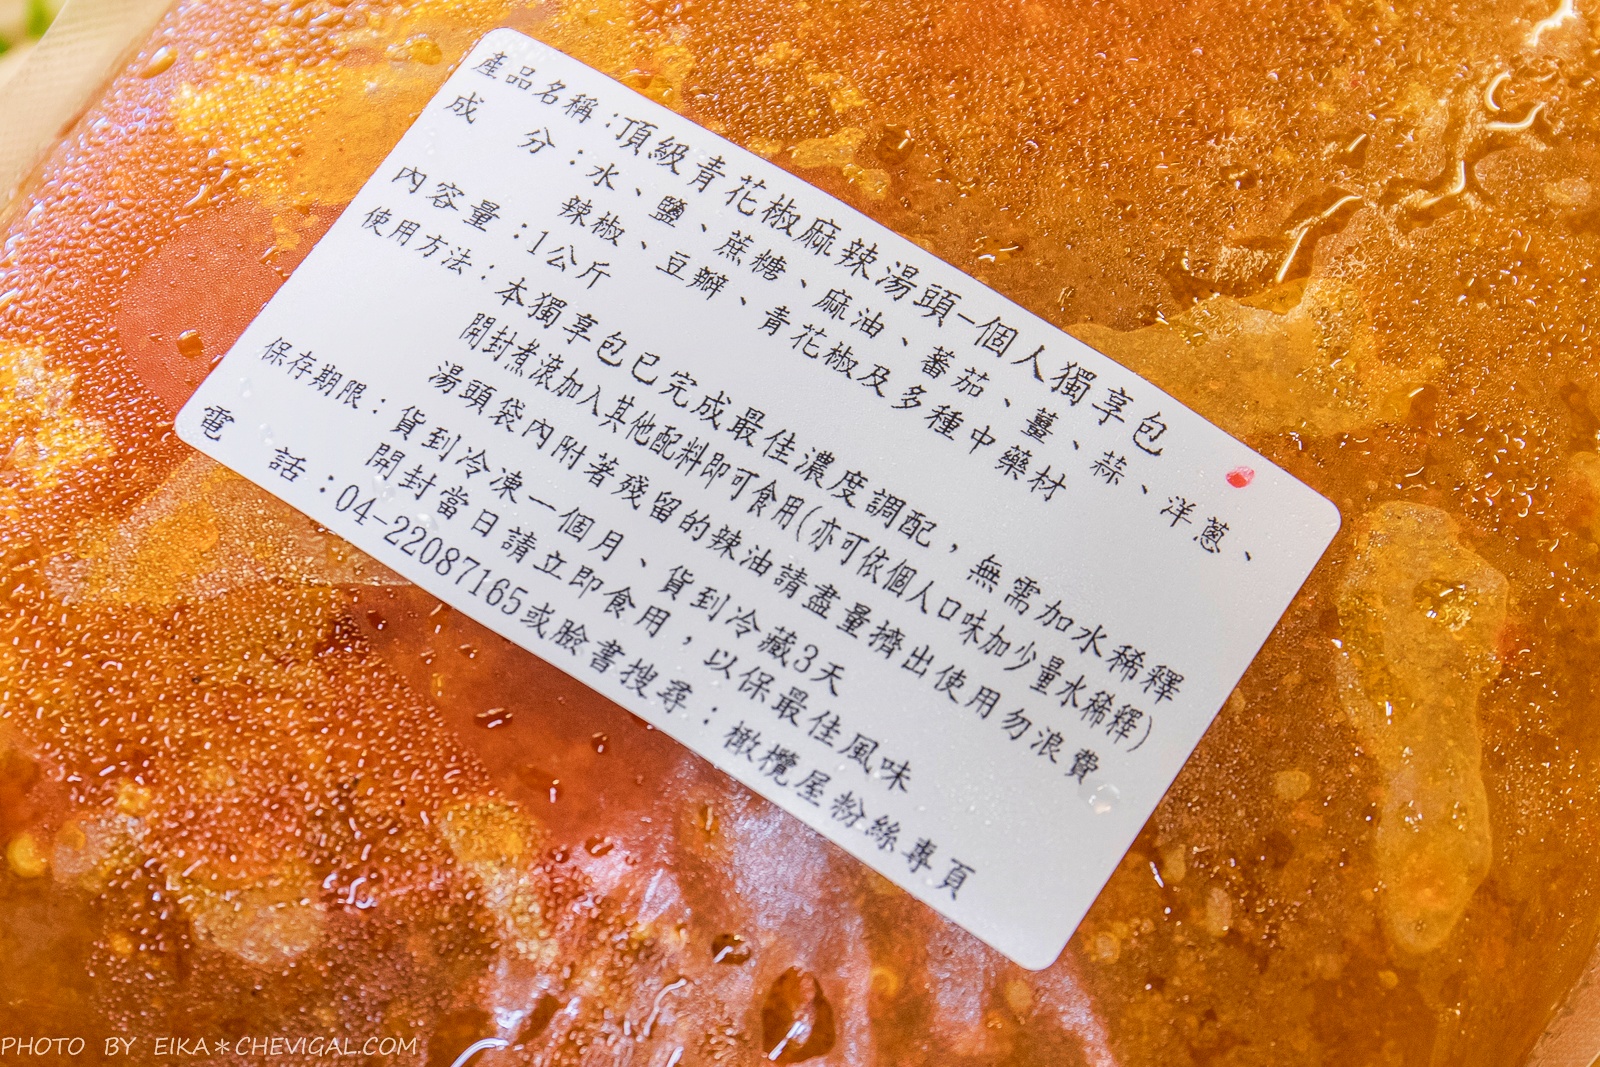 產品名稱:頂級青花椒麻辣湯頭-個人獨享包
成　　分:水、鹽、蔗糖、麻油、蕃茄、薑、蒜、洋蔥、
辣椒、豆瓣、青花椒及多種中藥材
內容量:1公斤
使用方法:本獨享包已完成最佳濃度調配，無需加水稀釋
開封煮滾加入其他配料即可食用(亦可依個人口味加少量水稀釋)
湯頭袋內附著殘留的辣油請盡量擠出使用勿浪費
保存期限:貨到冷凍一個月、貨到冷藏3天
開封當日請立即食用，以保最佳風味
電　　話:04-22087165或臉書搜尋:橄欖屋粉絲專頁
PHOTO BY EIKA*CHEVIGAL.COM